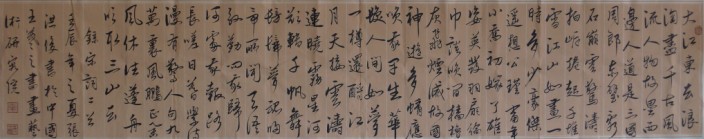 大江東去浪
淘盡千古風
流人物故壘西
邊人道是三國
周郎赤壁亂
石崩雲驚濤
拍岸捲起千堆
雪江山如畫一
時多少豪傑
遙想公瑾當年
小喬初嫁了雄
姿英發羽扇綸
巾談笑間檣櫓
灰飛煙滅故國
神遊多情應
笑我早生華髮
人間如夢
一樽還酹江
月天接雲濤
連曉霧星河
欲轉千帆舞
彷彿夢魂歸
帝所聞天語
殷勤問我歸
何處我報路
長嗟日暮學詩
謾有驚人句九
萬里風鵬正舉
風休住蓬舟
吹取三山去
錄宋詞二首
壬辰年之夏張
書於中國
王羲之書畫藝
術研究院